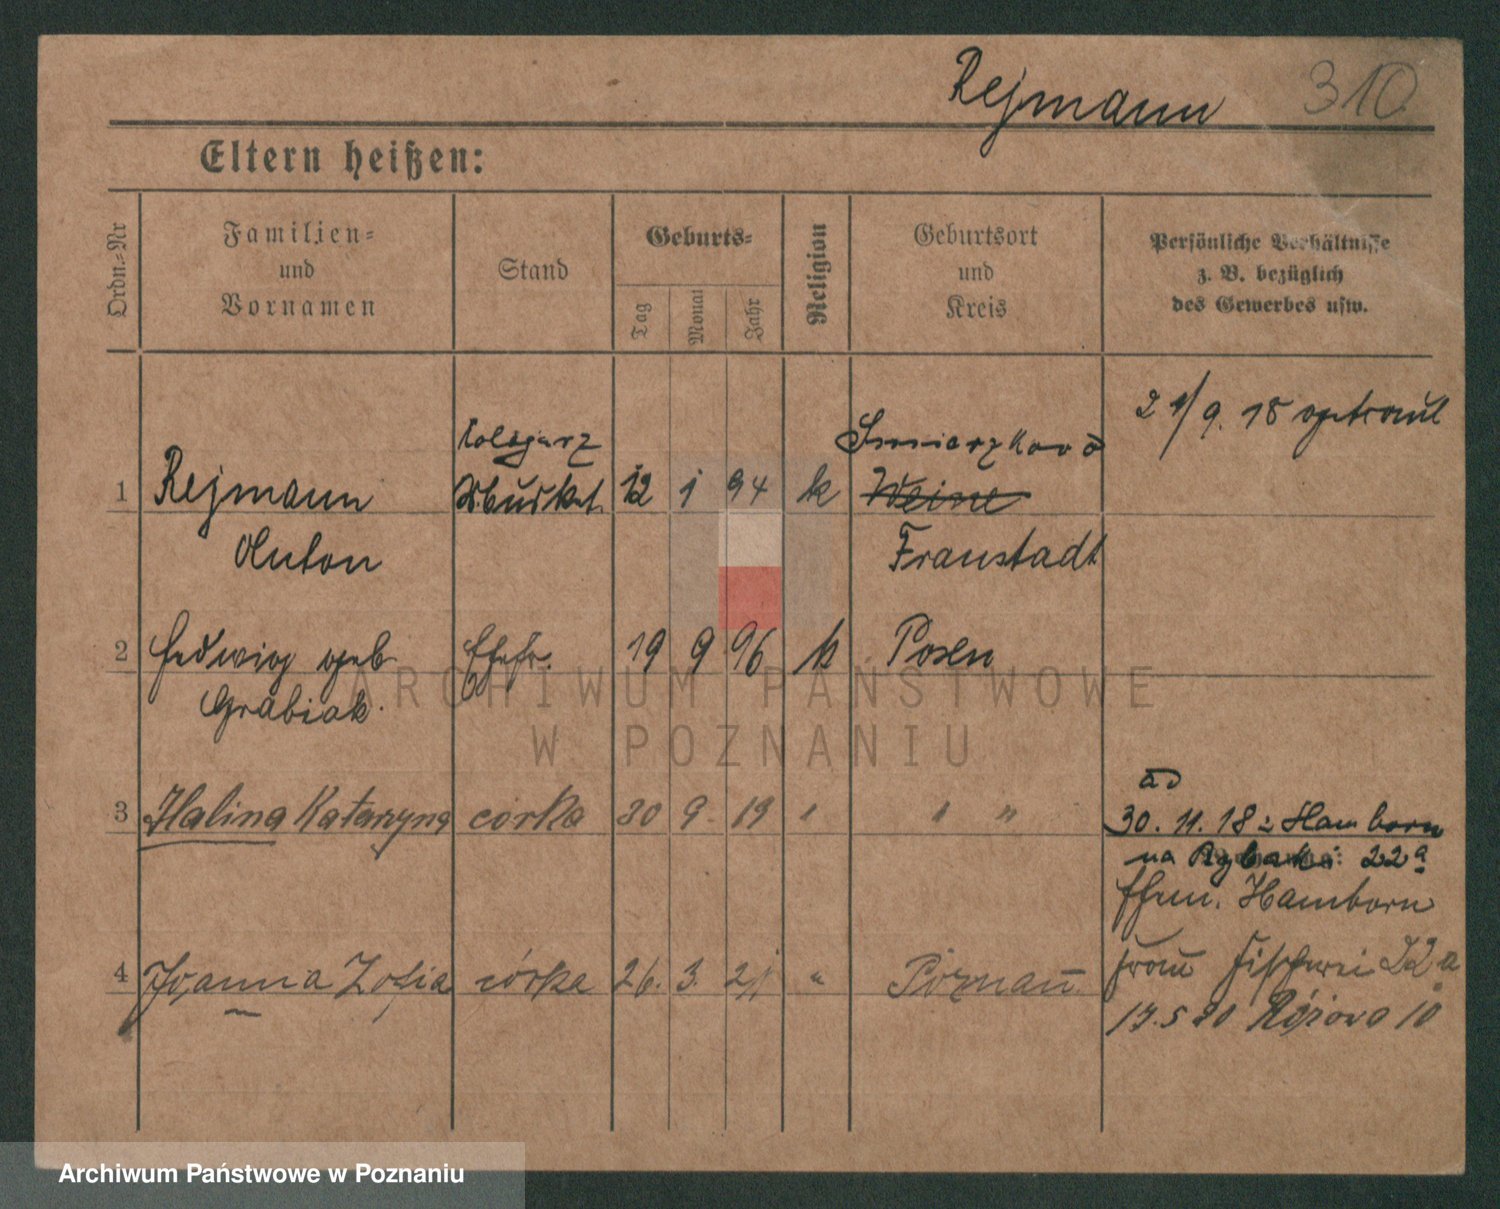 Rejmann 310
Eltern heißen:
Ordn.-Nr
Familien-
und
Vornamen
Stand
Geburts-
Tag
Monat
Jahr
Religion
Geburtsort
und
Kreis
Persönliche Verhältnisse
z. B. bezüglich
des Gewerbes usw.
1 Rejmann 12 1 94 k Weine
Anton Fraustadt
9. 18
2 Hedwig geb Ehefr. 19 9 96 k Posen
Grabiak.
3 Halina Katarzyna córka 9 19 " " "
30. 11. 18 Hamborn
na Rybaki 22a
Hamborn
4 Joanna Zofia córka 26. 3. 21 " Poznań
17.5 20 10
ARCHIWUM PAŃSTWOWE
W POZNANIU
Archiwum Państwowe w Poznaniu